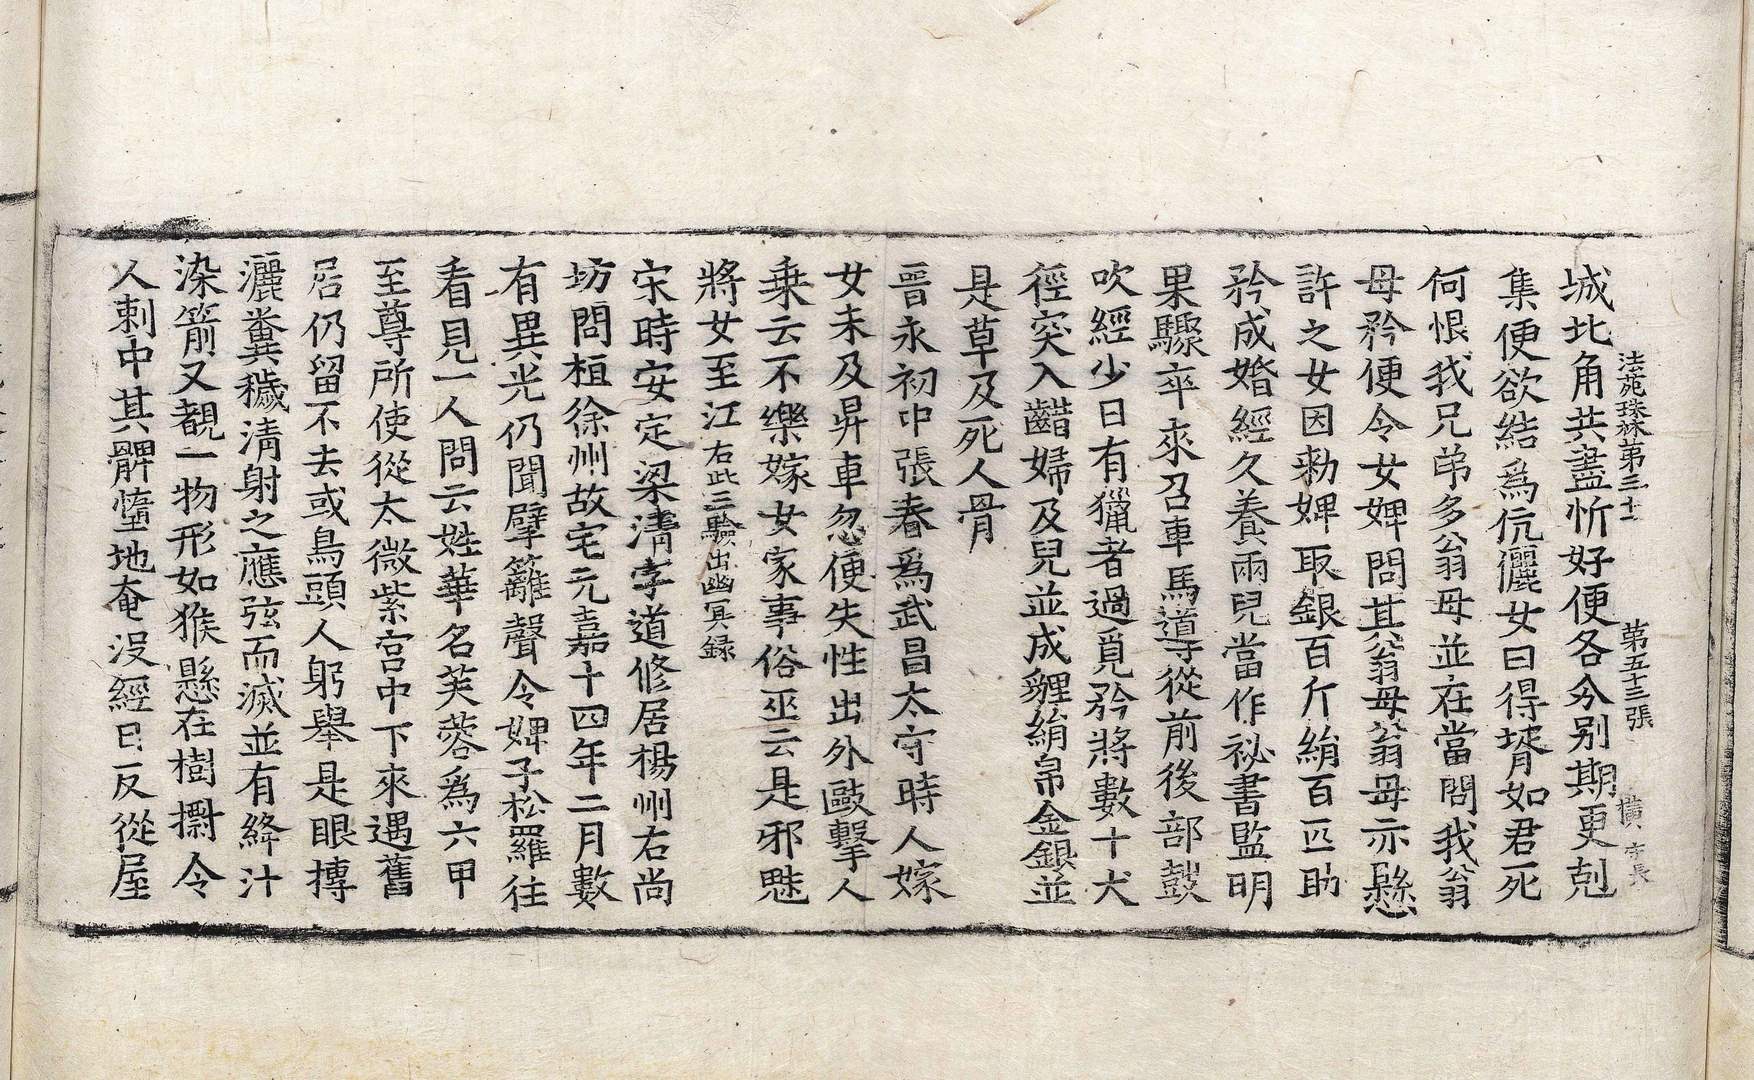 法苑珠林第三十一 第五十三張 橫 守長
城北角共盡忻好便各分别期更剋
集便欲結爲伉儷女曰得壻如君死
何恨我兄弟多翁母並在當問我翁
母矜便令女婢問其翁母翁母亦懸
許之女因勑婢取銀百斤絹百匹助
矜成婚經久養兩兒當作祕書監明
果驟卒來召車馬導從前後部鼓
吹經少日有獵者過覓矜將數十犬
徑突入齰婦及兒並成貍絹帛金銀並
是草及死人骨
晉永初中張春爲武昌太守時人嫁
女未及昇車忽便失性出外毆擊人
乗云不樂嫁女家事俗巫云是邪魅
將女至江右此三驗出幽冥録
宋時安定梁清字道修居楊州右尚
坊問桓徐州故宅元嘉十四年二月數
有異光仍聞擘籬聲令婢子松羅往
看見一人問云姓華名芙蓉爲六甲
至尊所使從太微紫宫中下來過舊
居仍留不去或鳥頭人躬舉是眼摶
灑糞穢清射之應弦而滅並有絳汁
染箭又覩一物形如猴懸在樹摽令
人刺中其髀墮地奄没經日反從屋